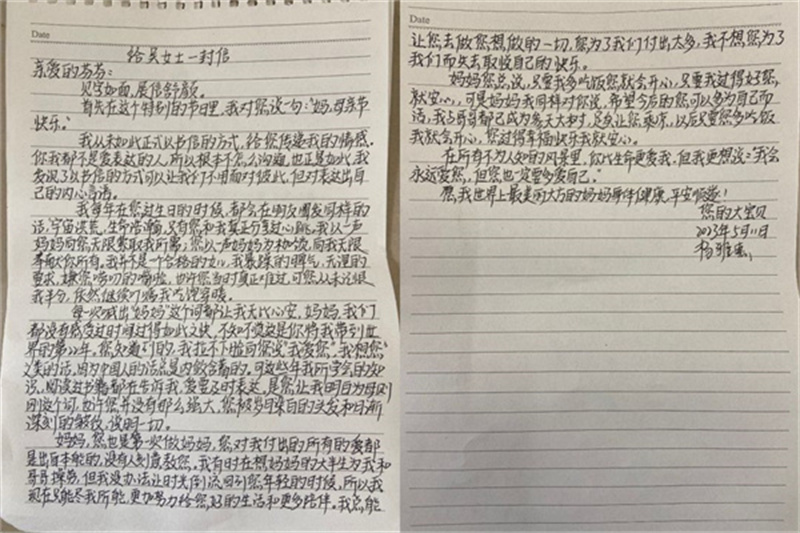 Date
给吴女士一封信
亲爱的芬芬:
见字如面,展信舒颜。
首先在这个特别的节日里,我对您说一句:"妈,母亲节
快乐。"
我从未如此正式以书信的方式,给您传递我的情感。
你我都不是爱表达的人,所以根本不怎么沟通,也正是如此,我
发现了以书信的方式可以让我们不用面对彼此,但对表达出自
己的内心言语。
我每年在您过生日的时候,都会在朋友圈发同样的
话,宇宙洪荒,生命浩瀚,只有您和我真正分享过心跳。我以一声
妈妈向您无限索取我所需;您以一声妈妈为枷锁,向我无限
奉献你所有。我并不是一个合格的女儿,我暴躁的脾气,无理的
要求,嫌您唠叨的嘴脸,也许您当时真正难过,可您从未记恨
我半分,依然继续叮嘱我吃饱穿暖。
每一次喊出"妈妈"这个词都让我无比心安,妈妈,我们
都没有感受过时间过得如此之快,不知不觉这是你将我带到世
界的第22年。您知道的,我拉不下脸向您说"我爱您""我想您"
之类的话,因为中国人的话总是内敛含蓄的。可这些年我所学会的知
识,阅读过书籍都在告诉我,爱要及时表达,是您让我明白为母则
刚这个词,也许您并没有那么强大,您被岁月染白的头发和日渐
深刻的皱纹,说明一切。
妈妈,您也是第一次做妈妈,您对我付出的所有的爱都
是出自本能的,没有人刻意教您。我有时在想妈妈的大半生为我和
哥哥操劳,但我没办法让时光倒流回到您年轻的时候,所以我
现在只能尽我所能,更加努力给您好的生活和更多陪伴。我总能
Date
让您去做您想做的一切,您为了我们付出太多,我不想您为了
我们而失去取悦自己的快乐。
妈妈您总说,只要我多吃饭您就会开心,只要我过得好您
就安心,可是妈妈我同样对您说,希望今后的您可以多为自己而
活,我与哥哥都已成为参天大树,足矣让您乘凉,以后只要您多吃饭
我就会开心,您过得幸福快乐我就安心。
在所有不为人知的风景里,你比生命更爱我,但我更想说:"我会
永远爱您,但您也一定要爱自己。"
愿,我世界上最美丽大方的妈妈身体健康,平安顺遂!
您的大宝贝
2023年5月11日